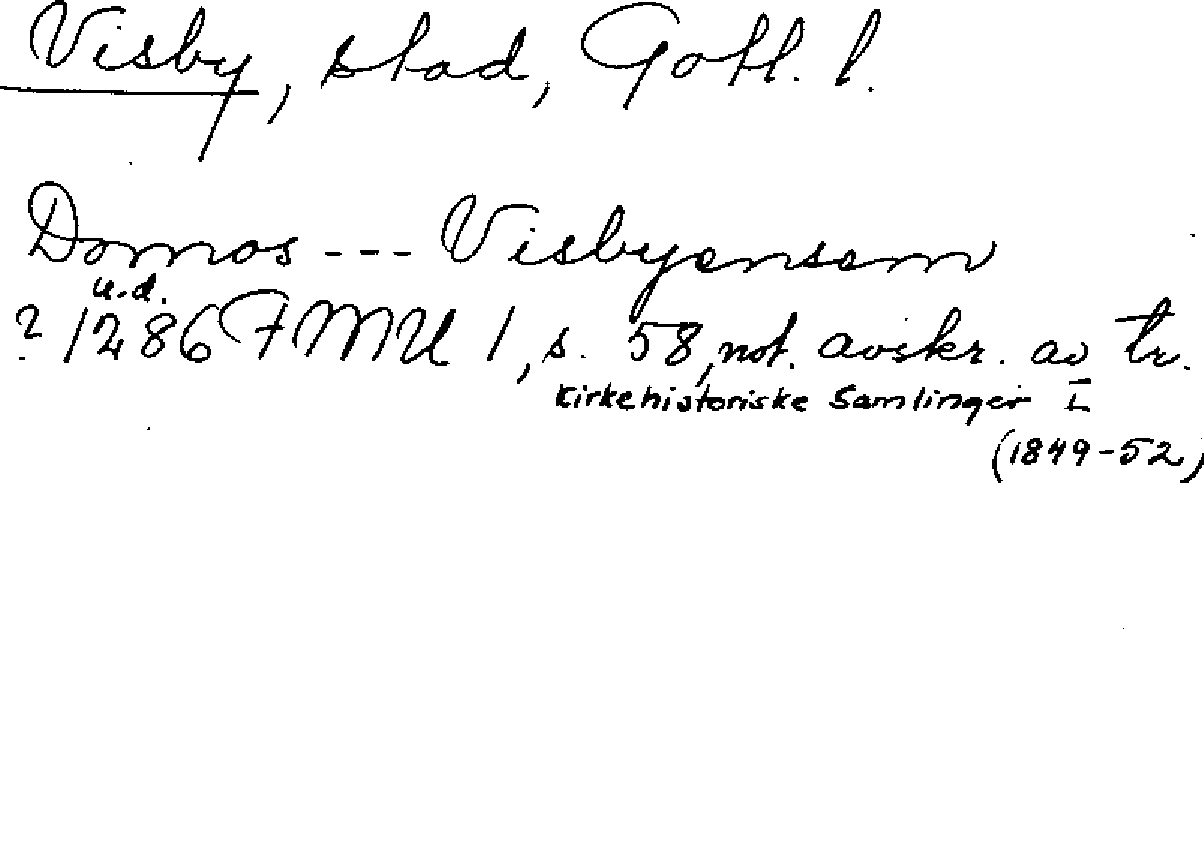 Visby, stad, Gotl. l.
Domos --- Visbyensem
u.d.
? 1286 FMU 1, s. 58, not. avskr. av tr.
Kirkehistoriske Samlinger I
(1849-52)